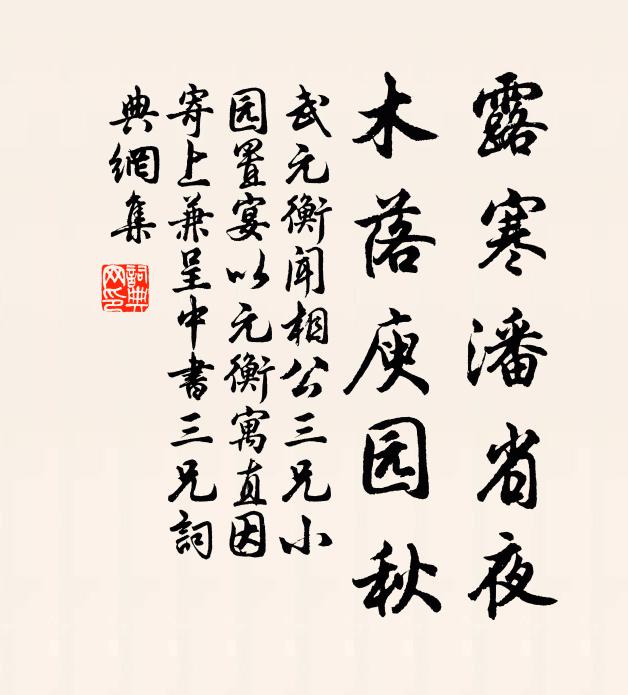 露寒潘省夜
木落庾园秋
武元衡闻相公三兄小
园置宴以元衡寓直因
寄上兼呈中書三兄詞
典網集
詞典网印